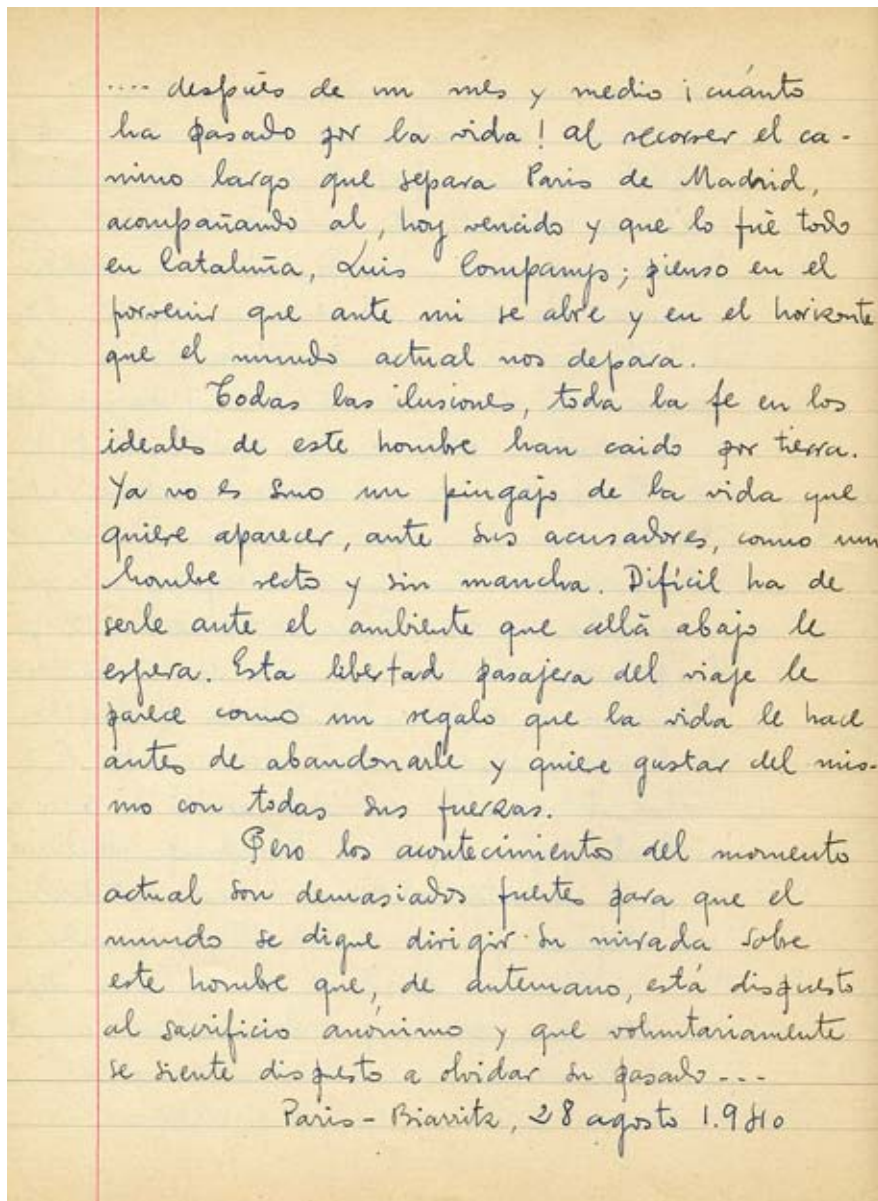 .... después de un mes y medio ¡ cuánto
ha pasado por la vida ! Al recorrer el ca-
mino largo que separa Paris de Madrid,
acompañando al, hoy vencido y que lo fué todo
en Cataluña, Luis Companys; pienso en el
porvenir que ante mi se abre y en el horizonte
que el mundo actual nos depara.
Todas las ilusiones, toda la fe en los
ideales de este hombre han caido por tierra.
Ya no es sino un pingajo de la vida que
quiere aparecer, ante sus acusadores, como un
hombre recto y sin mancha. Difícil ha de
serle ante el ambiente que allá abajo le
espera. Esta libertad pasajera del viaje le
parece como un regalo que la vida le hace
antes de abandonarle y quiere gustar del mis-
mo con todas sus fuerzas.
Pero los acontecimientos del momento
actual son demasiados fuertes para que el
mundo se digne dirigir su mirada sobre
este hombre que, de antemano, está dispuesto
al sacrificio anónimo y que voluntariamente
se siente dispuesto a olvidar su pasado ---
Paris - Biarritz, 28 agosto 1.940